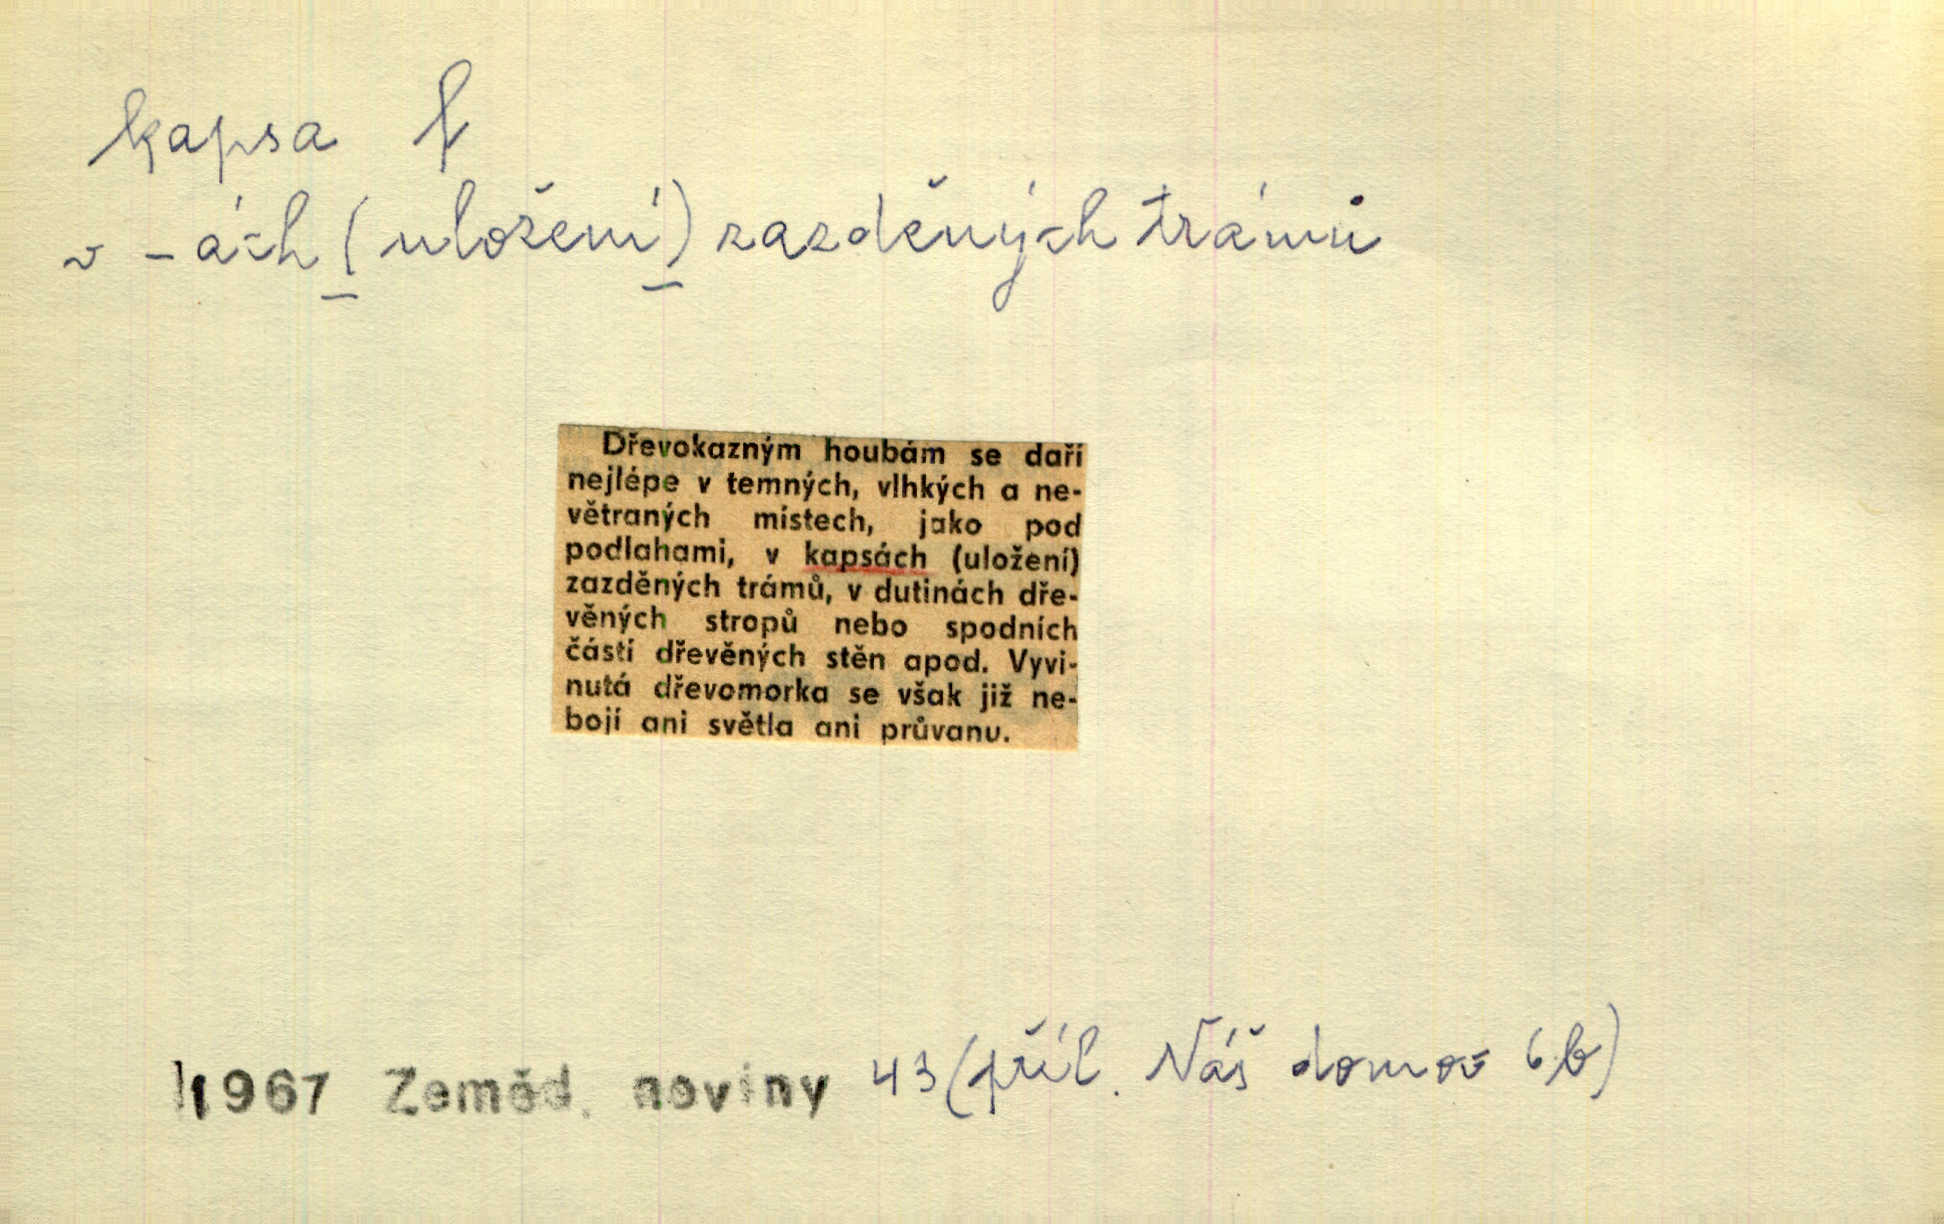 kapsa f
v -ách (uložení) zazděných trámů
Dřevokazným houbám se daří
nejlépe v temných, vlhkých a ne-
větraných místech, jako pod
podlahami, v kapsách (uložení)
zazděných trámů, v dutinách dře-
věných stropů nebo spodních
částí dřevěných stěn apod. Vyvi-
nutá dřevomorka se však již ne-
bojí ani světla ani průvanu.
1967 Zeměd. noviny 43 (příl. Náš domov 6b)